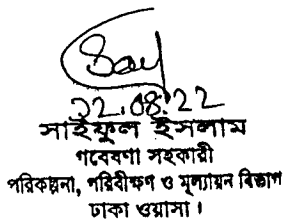 22.08.22
সাইফুল ইসলাম
গবেষণা সহকারী
পরিকল্পনা, পরিবীক্ষণ ও মূল্যায়ন বিভাগ
ঢাকা ওয়াসা।